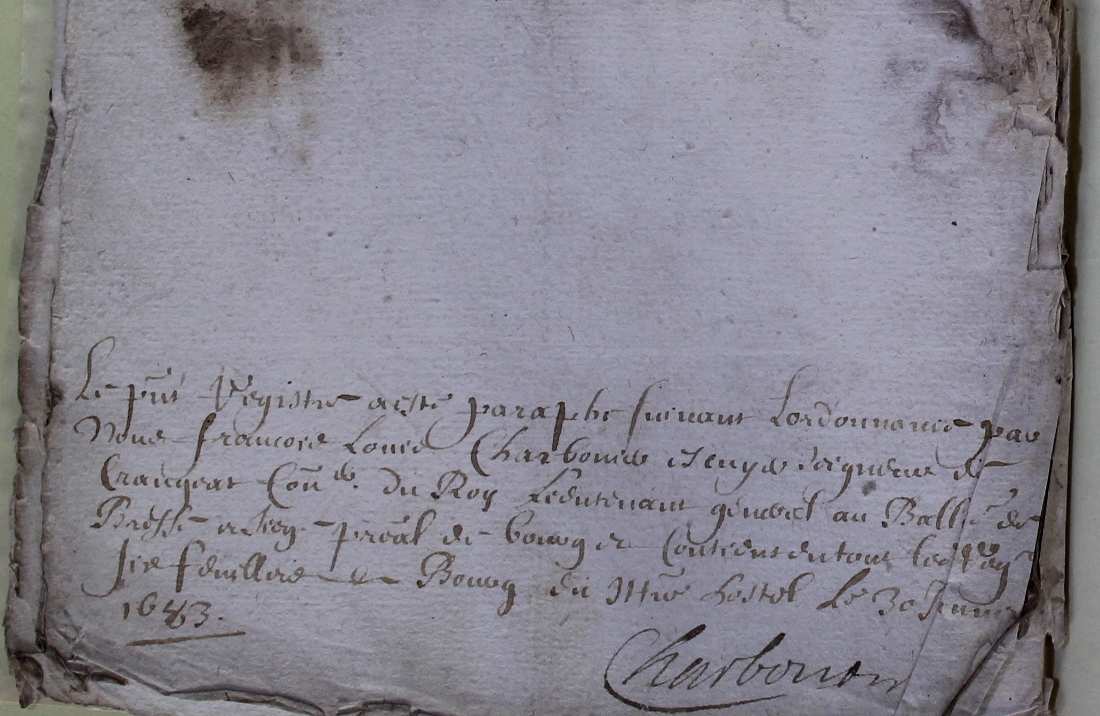 Le pnt Registre a esté paraphé suivant Lordonnance par
Nous francois Louis Charbonier escuyer seigneur de
Craingeat Conˡᵉʳ du Roy Lieutenant general au Balle de
Bresse et siege preãl de bourg et Contient en tout
six feuillets a Bourg en nre hostel Le 30
1683.
Charbonier